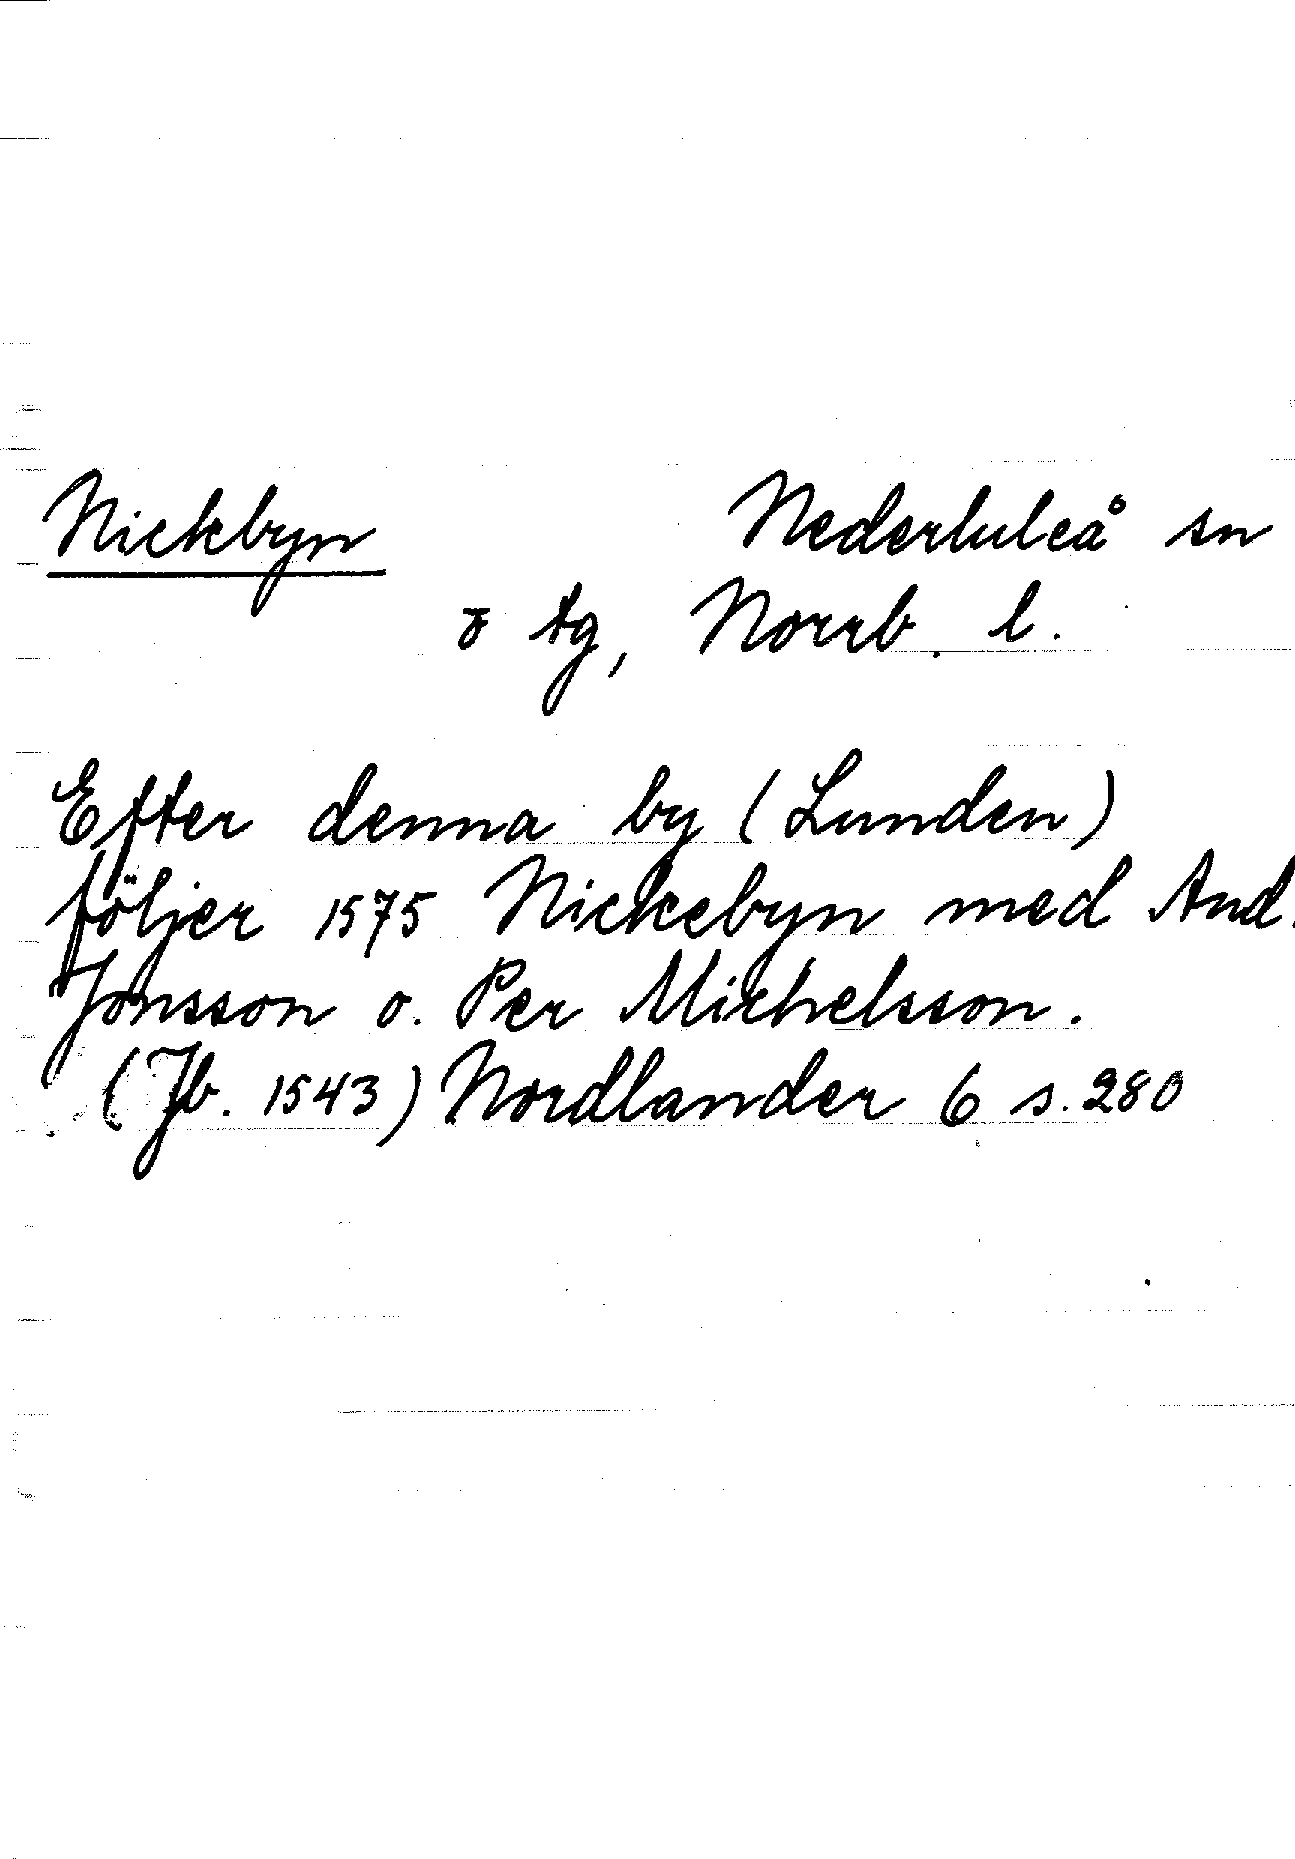 Nickbyn Nederluleå sn
ö tg, Norrb. l.
Efter denna by (Lunden)
följer 1575 Nickebyn med And.
Jonsson o. Per Michelsson.
(Jb. 1543) Nordlander 6 s. 280